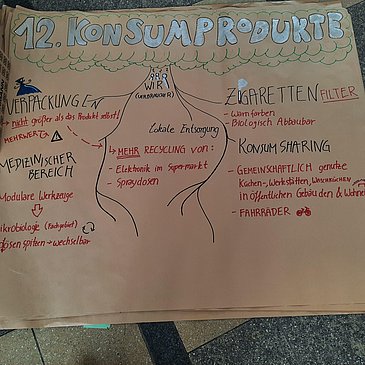 12. KONSUMPRODUKTE
WIR
(VERBRAUCHER)
VERPACKUNGEN
→ nicht größer als das Produkt selbst!
MEHRWERT
MEDIZINISCHER
BEREICH
Modulare Werkzeuge
Mikrobiologie (Fachgebiet)
→ wechselbar
Lokale Entsorgung
→ MEHR RECYCLING von:
- Elektronik im Supermarkt
- Spraydosen
ZIGARETTENFILTER
- Warnfarben
- Biologisch Abbaubar
KONSUM SHARING
- GEMEINSCHAFTLICH genutze
Küchen-, Werkstätten, Waschküchen
in öffentlichen Gebäuden &
- FAHRRÄDER